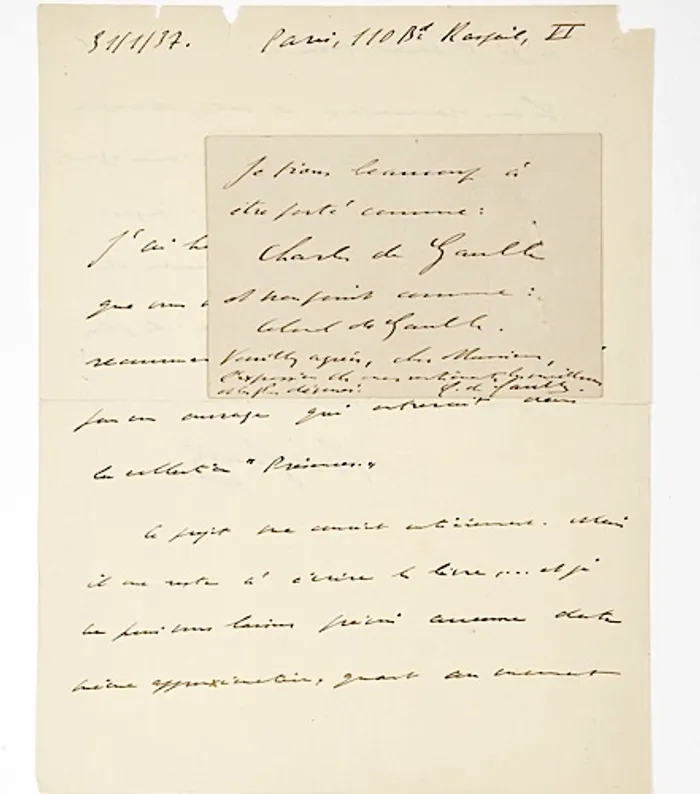 31/1/37. Paris, 110 Bd Raspail, VI
Je tiens beaucoup à
être porté comme :
Charles de Gaulle
et non point comme :
Colonel de Gaulle.
Veuillez agréer, cher Monsieur,
l'expression de mes sentiments les meilleurs
et les plus C. de Gaulle.
J'ai
que vous
pour un ouvrage qui entrerait dans
la collection "Présences".
Le projet me convient entièrement. Mais
il me reste à écrire le livre,... et je
ne puis vous laisser prévoir aucune date
même approximative, quant au moment